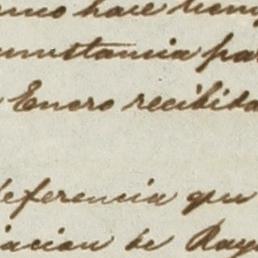 mo hace tiem
cunstancia par
Enero recibida
deferencia que
iacion de Ray